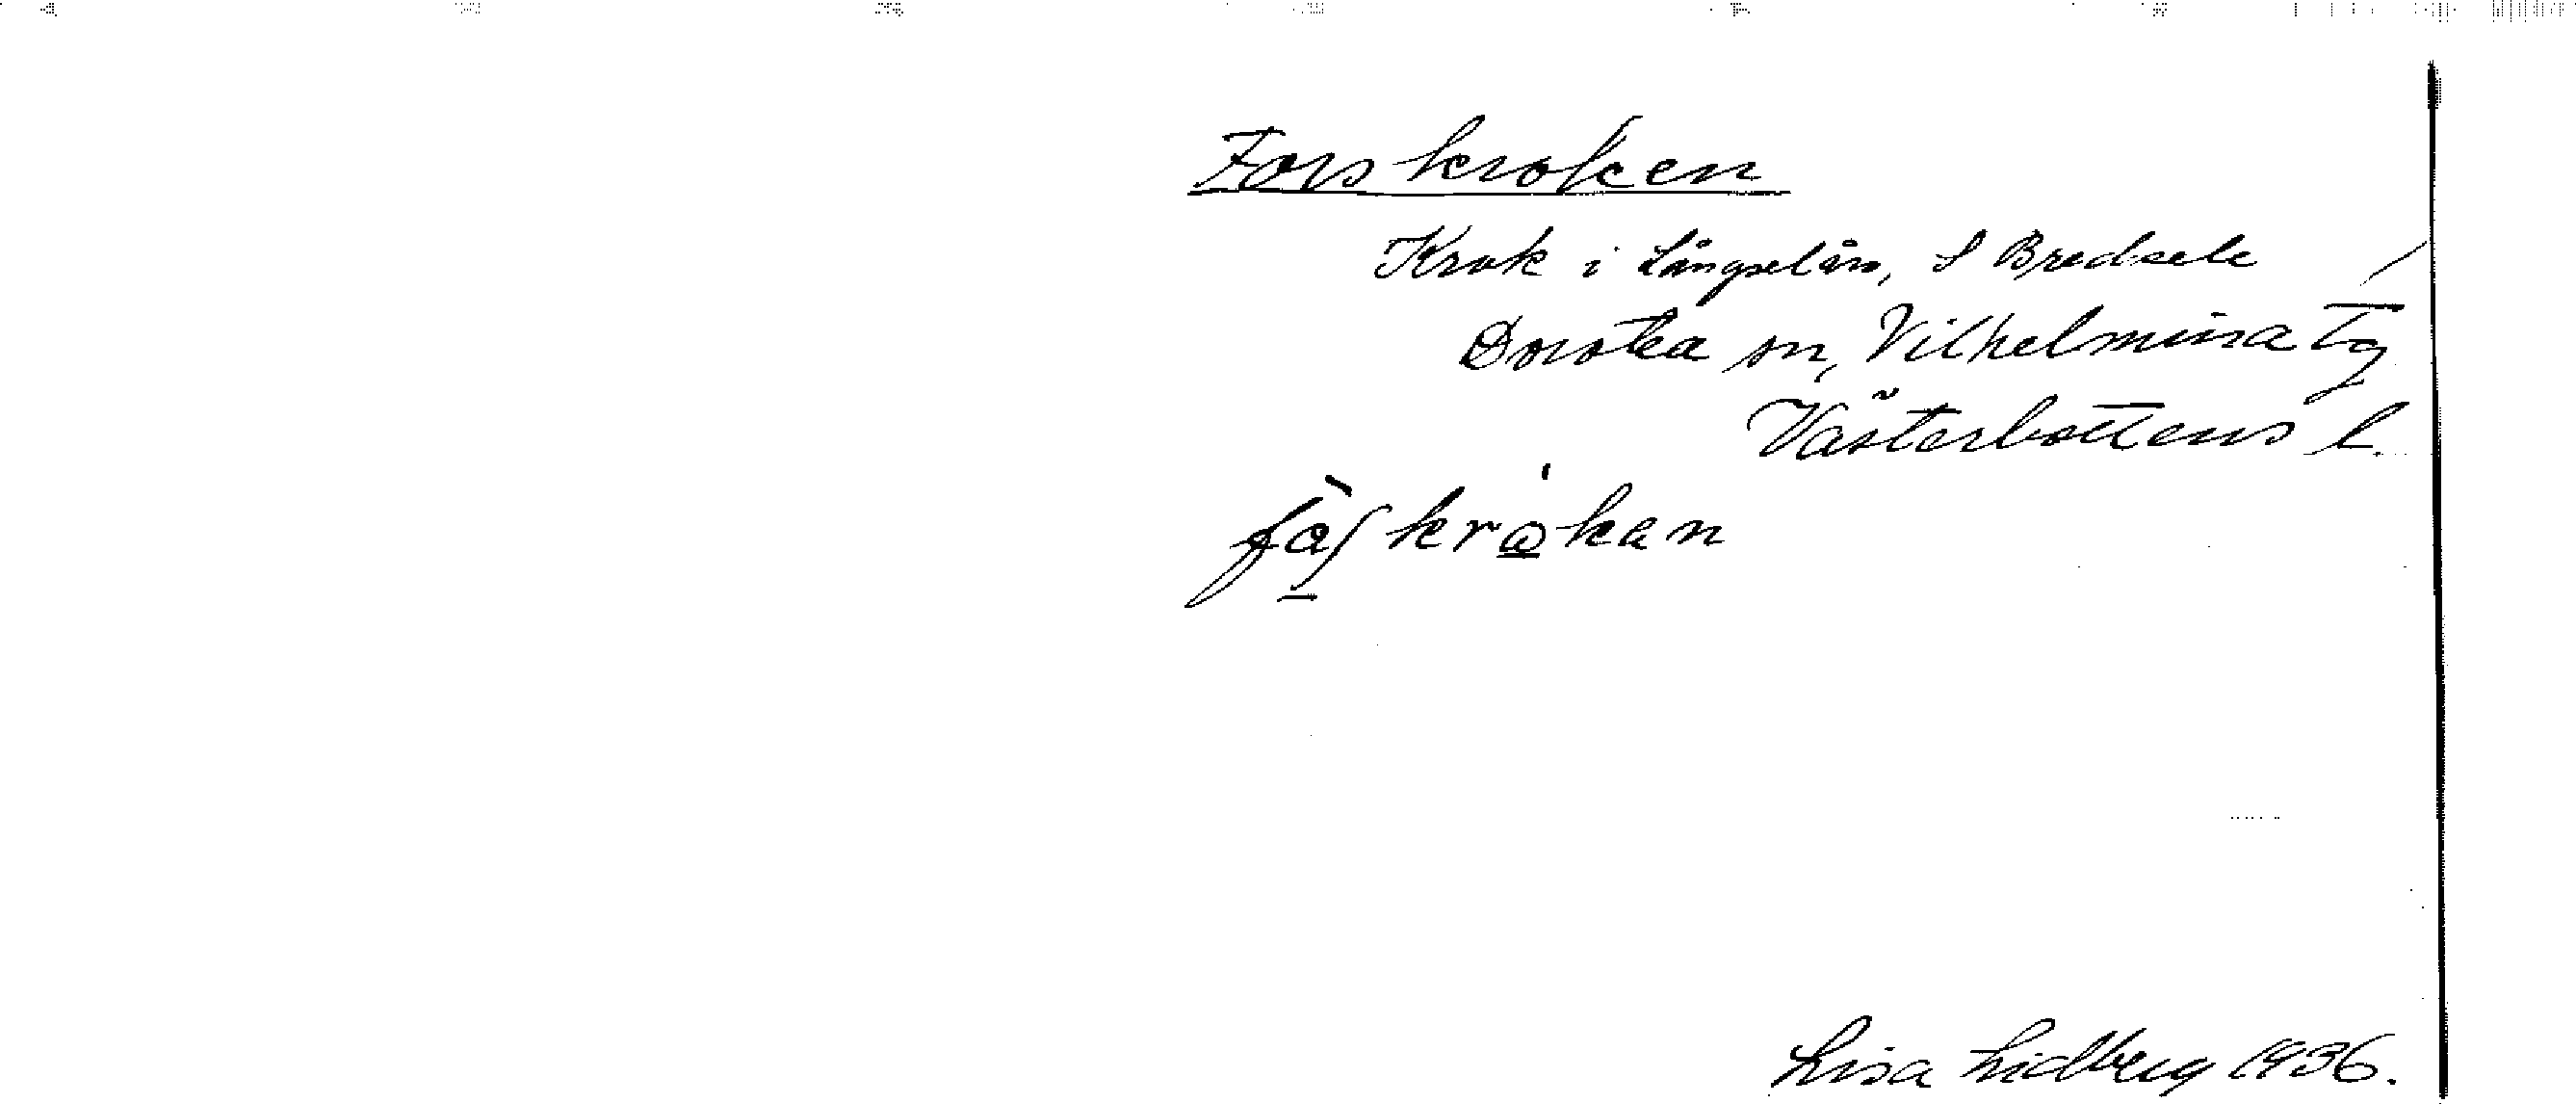 Forskroken
Krok i Långselån, S Bredsele
Dorotea sn, Vilhelmina Tg
Västerbottens l.
fàʃkråkan
Lisa Lidberg 1936.